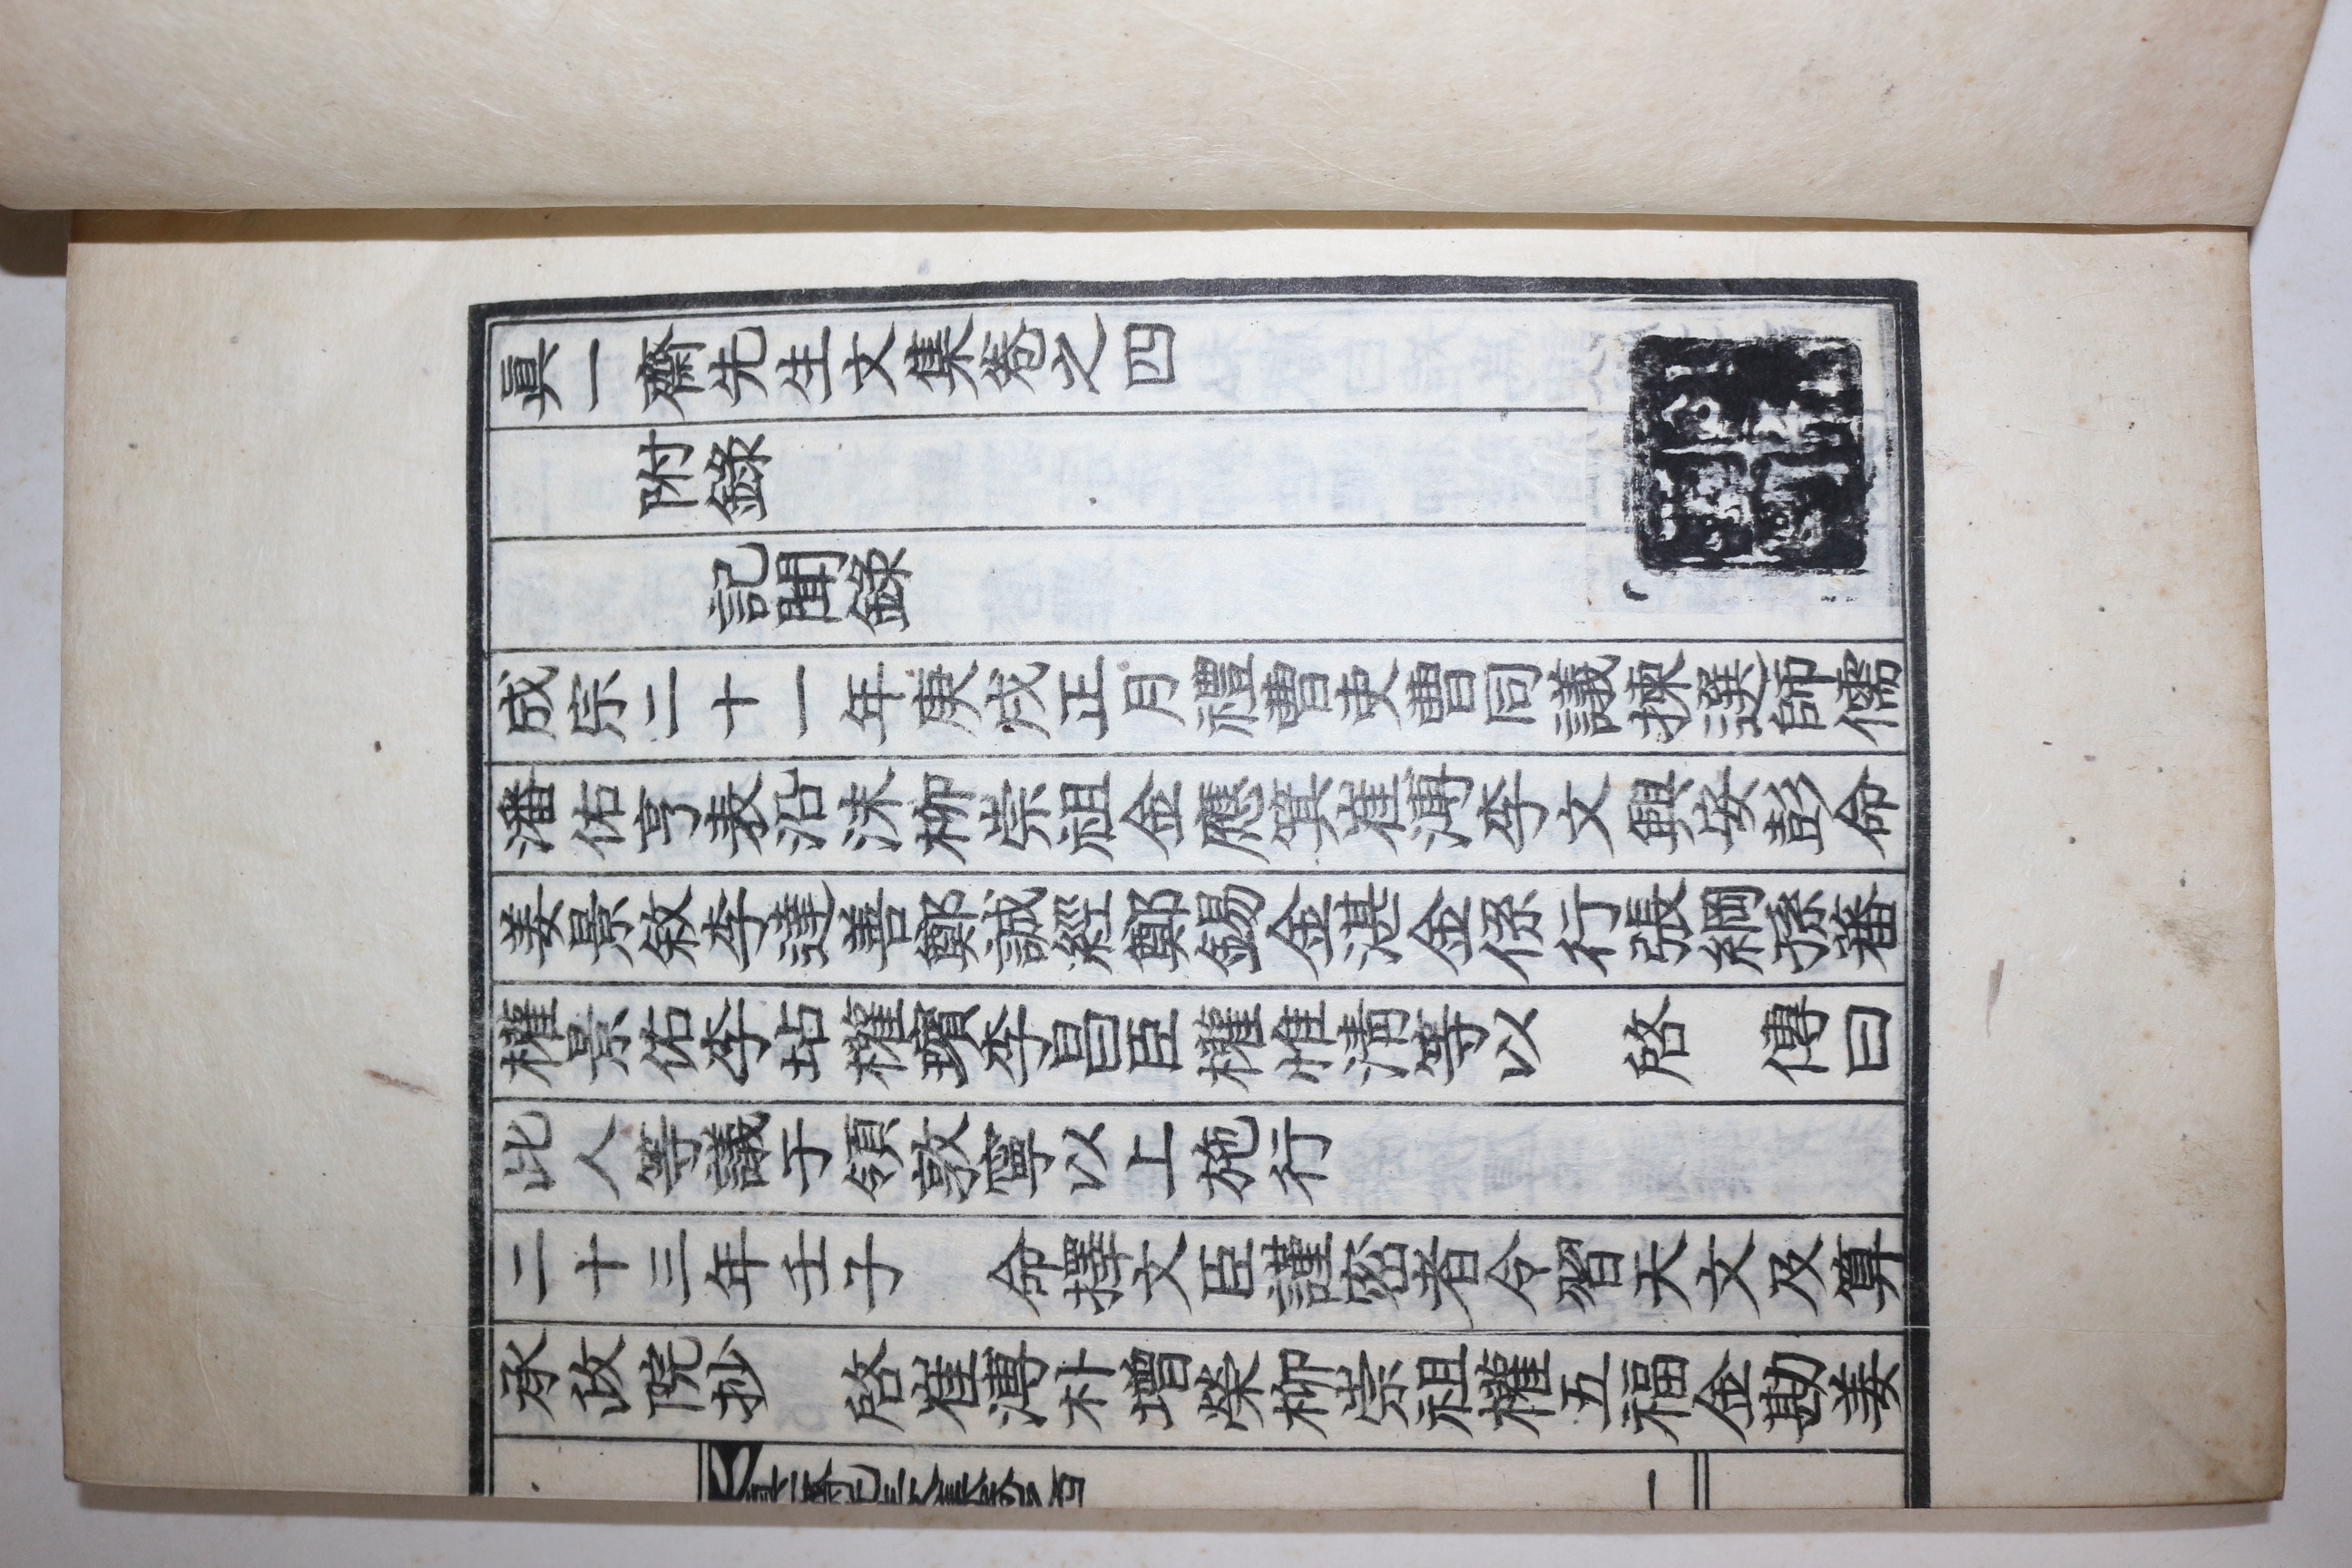 眞一齋先生文集卷之四
附錄
記聞錄
成宗二十一年庚戌正月禮曹吏曹同議揀選師儒
潘佑亨表沿沫柳崇祖金應箕崔溥李文興安彭命
姜景敘李達善鄭誠經鄭錫金湛金係行張綱孫蕃
權景佑李坫權璸李昌臣權惟淸等以 啓 傳曰
此人等議于領敦寧以上施行
二十三年壬子 命擇文臣謹密者令習天文及算
承政院抄 啓崔溥朴增榮柳崇祖權五福金勘姜
一